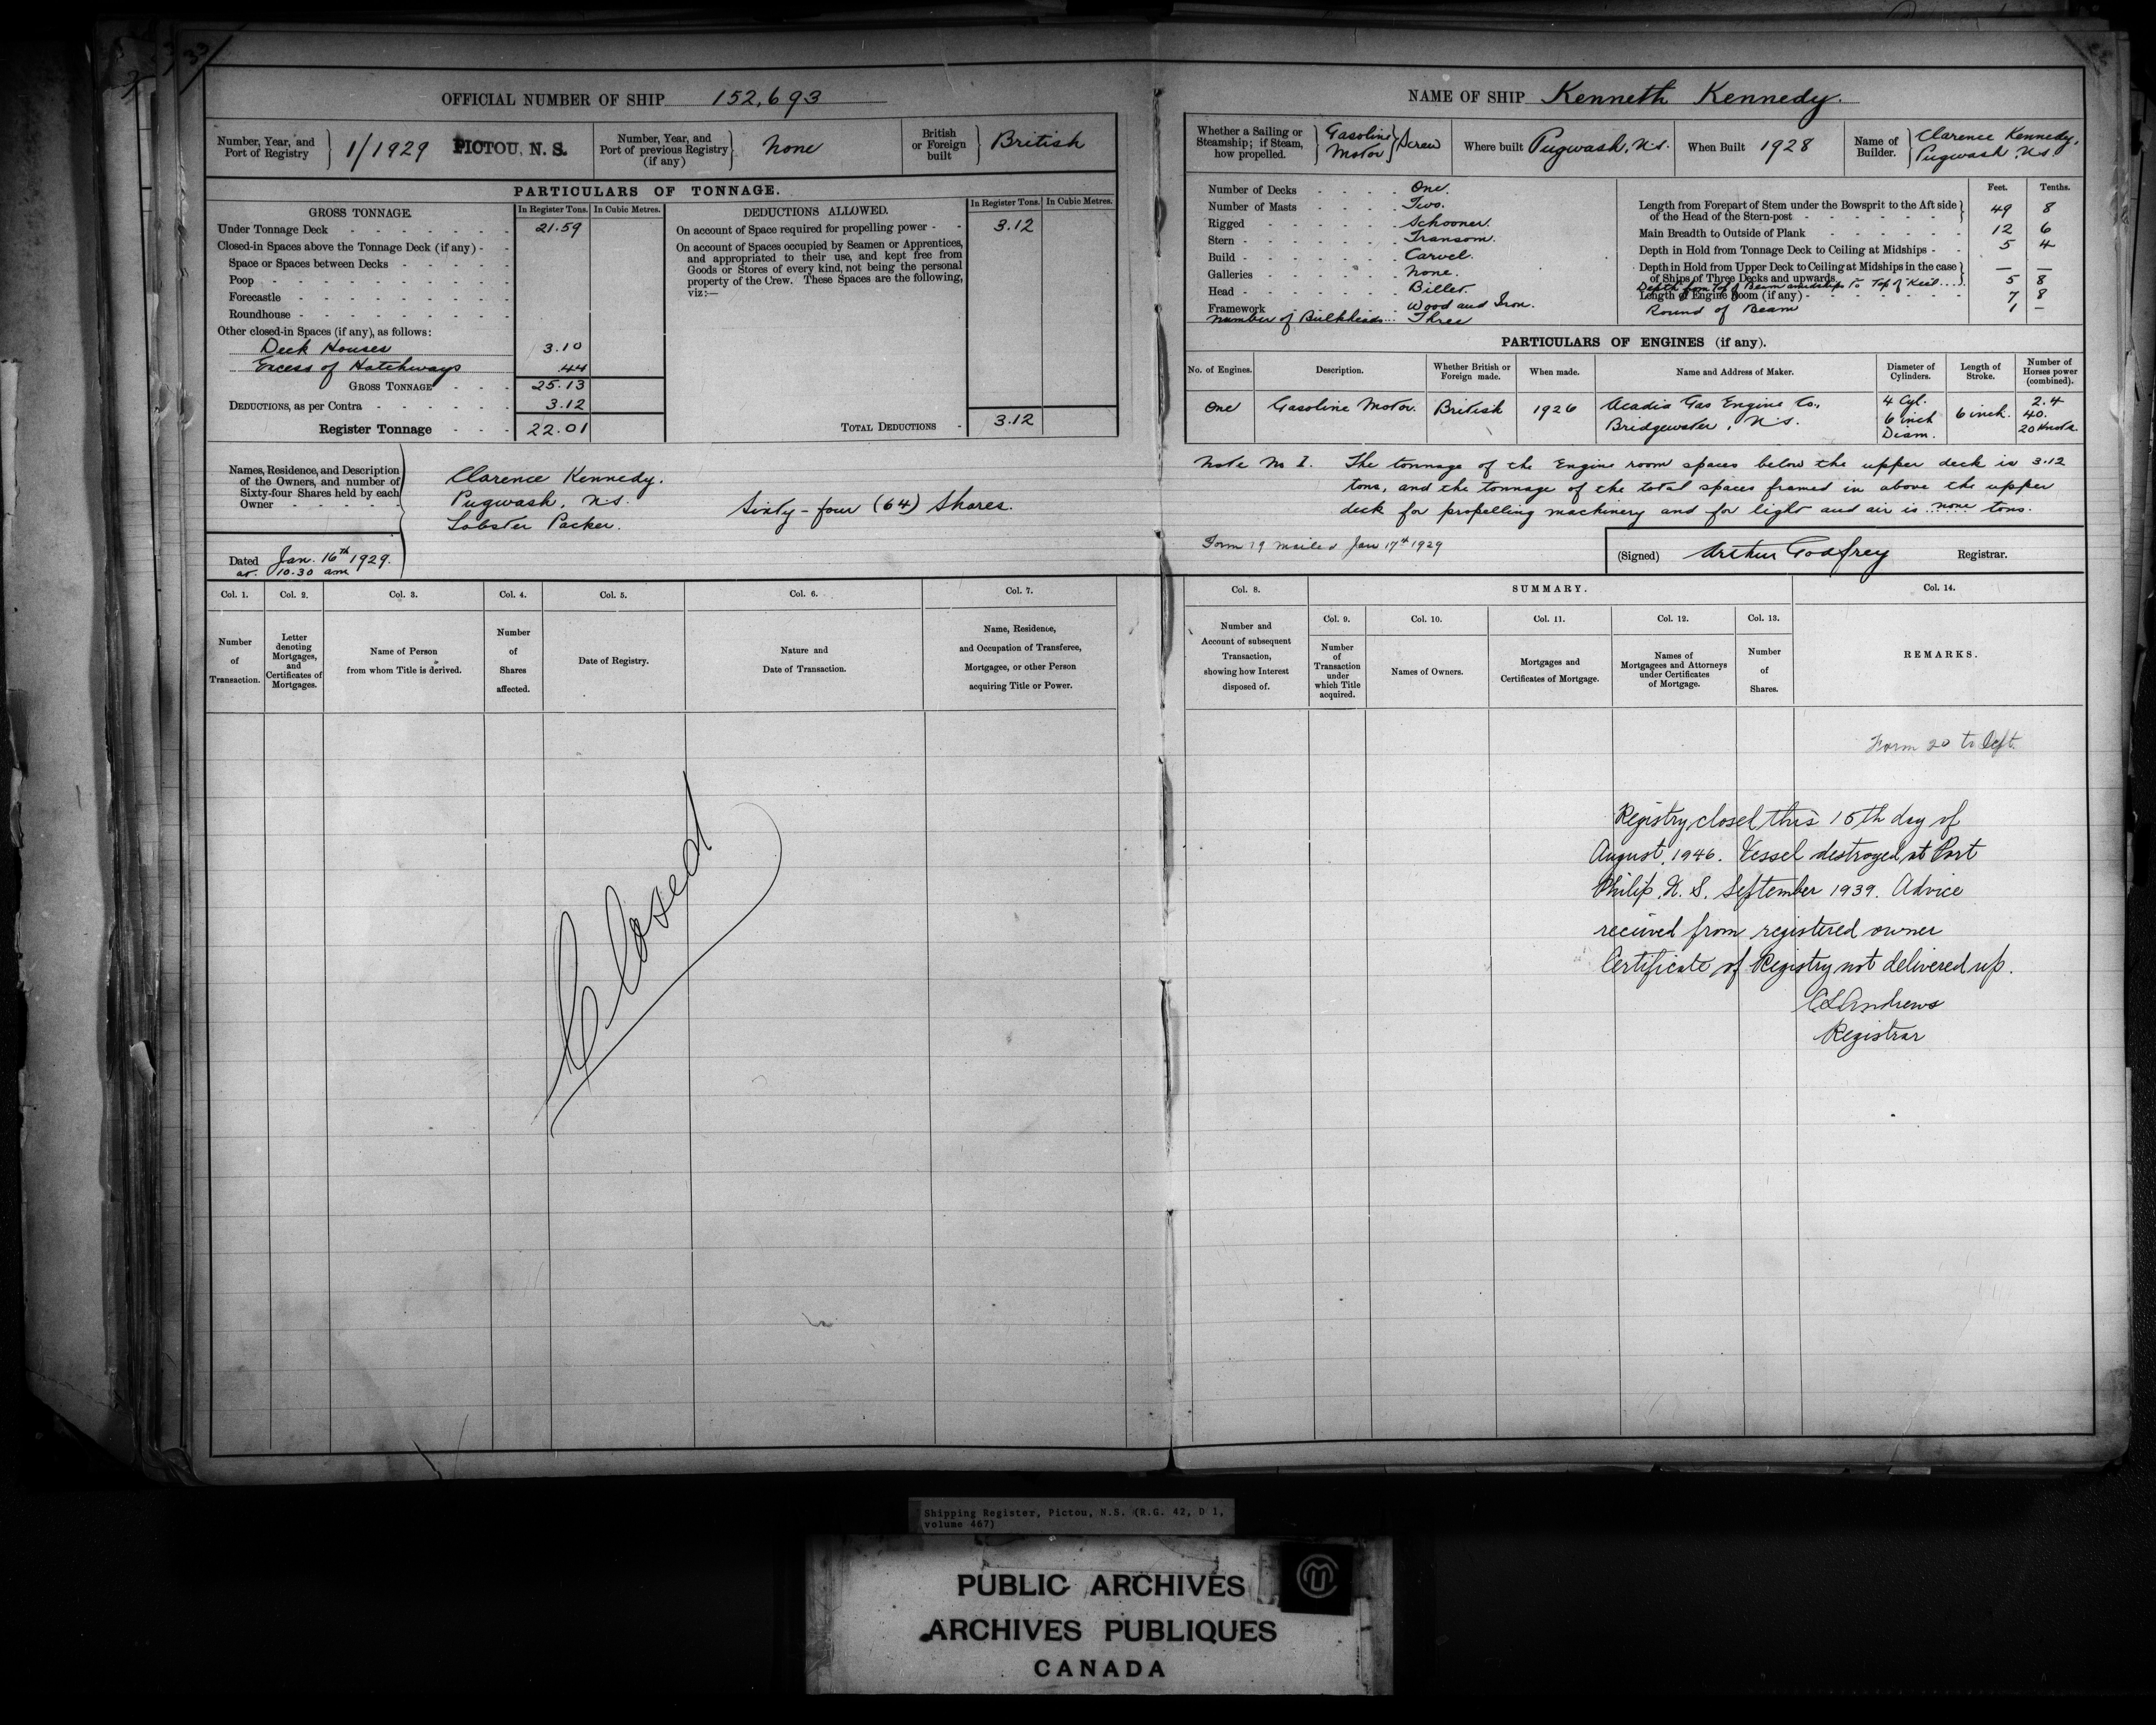 33
OFFICIAL NUMBER OF SHIP 152,693
Number, Year, and Port of Registry } 1/1929 PICTOU, N. S.
Number, Year, and Port of previous Registry (if any) } None
British or Foreign built } British
PARTICULARS OF TONNAGE.
GROSS TONNAGE. In Register Tons. In Cubic Metres.
Under Tonnage Deck 21.59
Closed-in Spaces above the Tonnage Deck (if any)
Space or Spaces between Decks
Poop
Forecastle
Roundhouse
Other closed-in Spaces (if any), as follows:
Deck Houses 3.10
Excess of Hatchways .44
GROSS TONNAGE 25.13
DEDUCTIONS, as per Contra 3.12
Register Tonnage 22.01
DEDUCTIONS ALLOWED. In Register Tons. In Cubic Metres.
On account of Space required for propelling power 3.12
On account of Spaces occupied by Seamen or Apprentices,
and appropriated to their use, and kept free from
Goods or Stores of every kind, not being the personal
property of the Crew. These Spaces are the following,
viz:—
TOTAL DEDUCTIONS 3.12
Names, Residence, and Description
of the Owners, and number of
Sixty-four Shares held by each
Owner
Clarence Kennedy.
Pugwash, N.S.
Lobster Packer.
Sixty-four (64) Shares.
Dated Jan. 16th 1929.
at 10.30 am
Col. 1. Col. 2. Col. 3. Col. 4. Col. 5. Col. 6. Col. 7.
Number of Transaction.
Letter denoting Mortgages, and Certificates of Mortgages.
Name of Person from whom Title is derived.
Number of Shares affected.
Date of Registry.
Nature and Date of Transaction.
Name, Residence, and Occupation of Transferee, Mortgagee, or other Person acquiring Title or Power.
Closed
NAME OF SHIP Kenneth Kennedy.
Whether a Sailing or Steamship; if Steam, how propelled. } Gasoline Motor } Screw
Where built Pugwash, N.S.
When Built 1928
Name of Builder. } Clarence Kennedy, Pugwash, N.S.
Number of Decks One.
Number of Masts Two.
Rigged Schooner.
Stern Transom.
Build Carvel.
Galleries None.
Head Billet.
Framework Wood and Iron.
Number of Bulkheads Three
Feet. Tenths.
Length from Forepart of Stem under the Bowsprit to the Aft side of the Head of the Stern-post 49 8
Main Breadth to Outside of Plank 12 6
Depth in Hold from Tonnage Deck to Ceiling at Midships 5 4
Depth in Hold from Upper Deck to Ceiling at Midships in the case of Ships of Three Decks and upwards — —
Depth from Top of Beam amidships to Top of Keel 5 8
Length of Engine Room (if any) 7 8
Round of Beam 1 —
PARTICULARS OF ENGINES (if any).
No. of Engines. Description. Whether British or Foreign made. When made. Name and Address of Maker. Diameter of Cylinders. Length of Stroke. Number of Horses power (combined).
One Gasoline Motor. British 1926 Acadia Gas Engine Co., Bridgewater, N.S. 4 Cyl. 6 inch Diam. 6 inch. 2.4 40. 20 Knots.
Note No 1. The tonnage of the Engine room spaces below the upper deck is 3.12
tons, and the tonnage of the total spaces framed in above the upper
deck for propelling machinery and for light and air is none tons.
Form 19 mailed Jan 17th 1929
(Signed) Arthur Godfrey Registrar.
Col. 8. SUMMARY. Col. 14.
Col. 9. Col. 10. Col. 11. Col. 12. Col. 13.
Number and Account of subsequent Transaction, showing how Interest disposed of.
Number of Transaction under which Title acquired.
Names of Owners.
Mortgages and Certificates of Mortgage.
Names of Mortgagees and Attorneys under Certificates of Mortgage.
Number of Shares.
REMARKS.
Form 20 to Dept.
Registry closed this 15th day of
August, 1946. Vessel destroyed at Port
Philip, N. S. September 1939. Advice
received from registered owner
Certificate of Registry not delivered up.
Andrews
Registrar
Shipping Register, Pictou, N.S. (R.G. 42, D 1,
volume 467)
PUBLIC ARCHIVES
ARCHIVES PUBLIQUES
CANADA